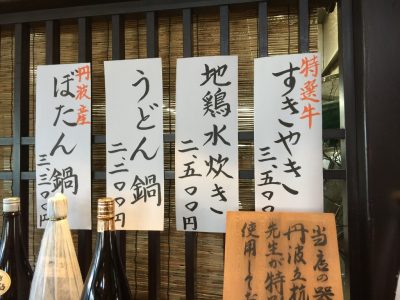 特選牛
すきやき
三、五〇〇円
地鶏水炊き
二、五〇〇円
うどん鍋
二、二〇〇円
丹波産
ぼたん鍋
三、三〇〇円
当店の器
丹波立杭
先生が特別
使用して